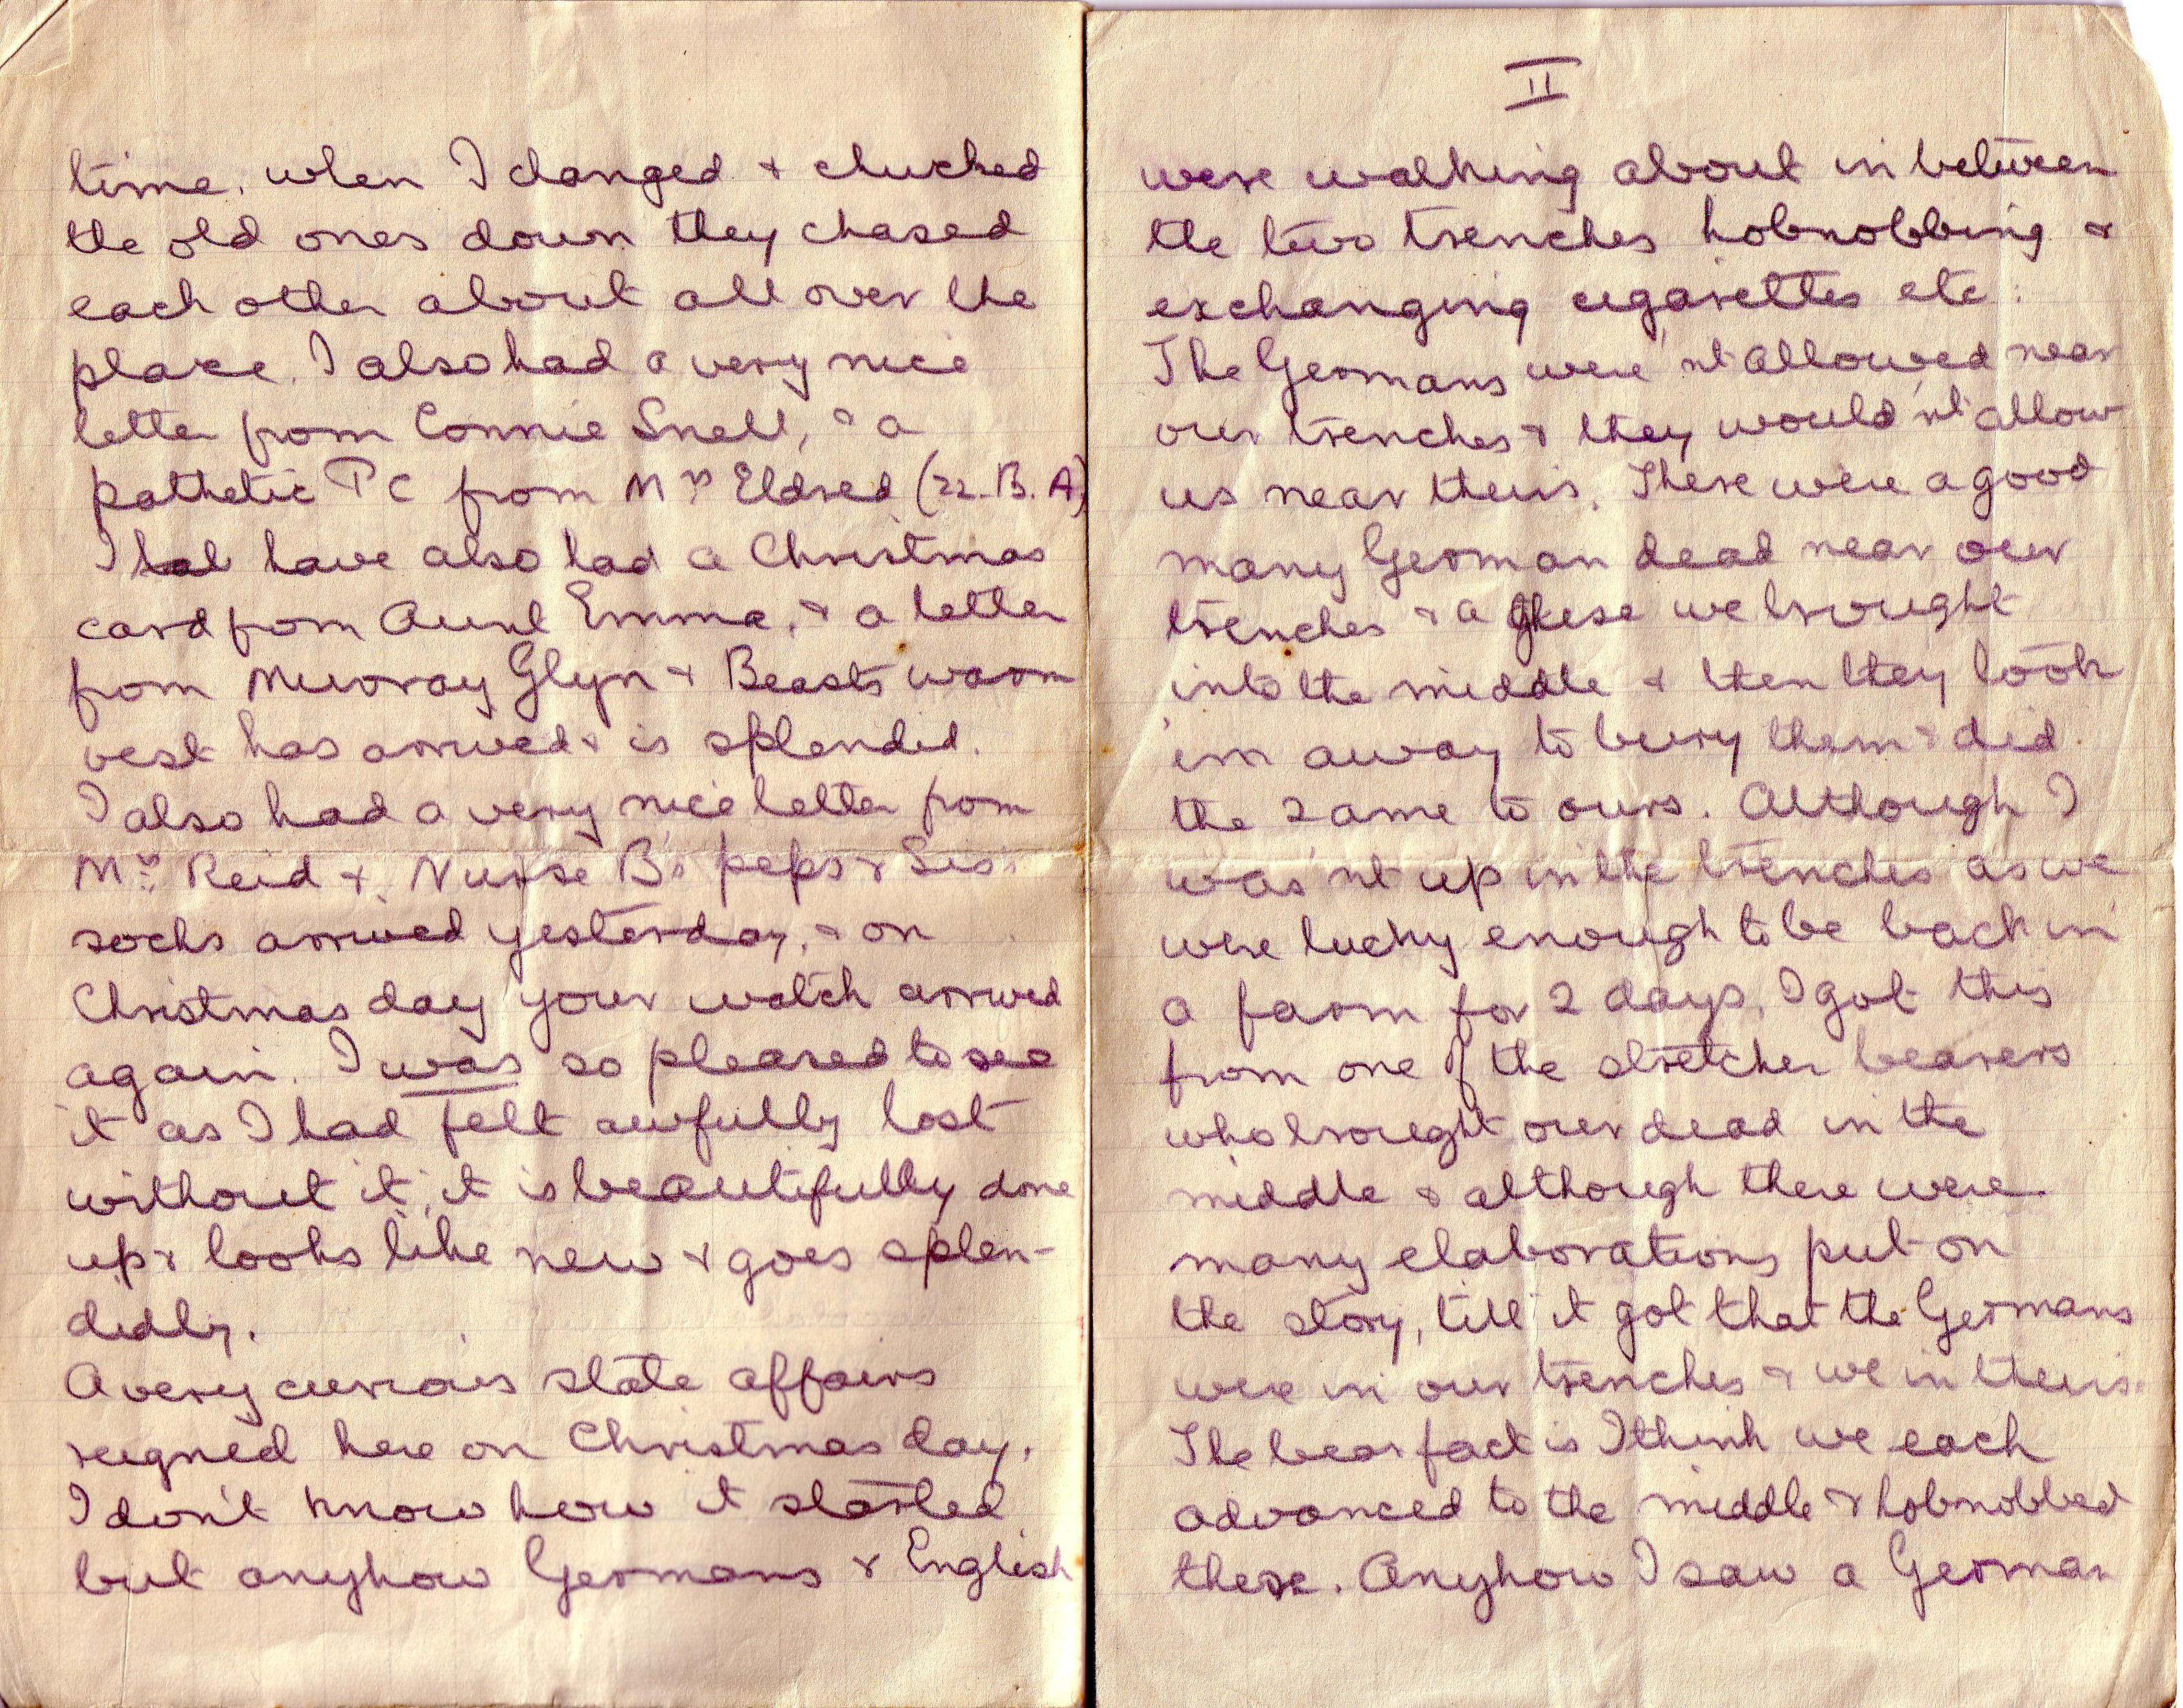 time. when I changed & chucked
the old ones down they chased
each other about all over the
place. I also had a very nice
letter from Connie Snell, & a
pathetic PC from Mrs Eldred (22. B. A.)
I have also had a Christmas
card from Aunt Emma, & a letter
from Murray Glyn & Beasts warm
vest has arrived & is splendid.
I also had a very nice letter from
Mrs Reid & Nurse B's peps & Sis's
socks arrived yesterday, & on
Christmas day your watch arrived
again. I was so pleased to see
it as I had felt awfully lost
without it, it is beautifully done
up & looks like new & goes splen-
didly.
A very curious state affairs
reigned here on Christmas day.
I don't know how it started
but anyhow Germans & English
II
were walking about in between
the two trenches hobnobbing &
exchanging cigarettes etc:
The Germans were'nt allowed near
our trenches & they would'nt allow
us near theirs. There were a good
many German dead near our
trenches & a these we brought
into the middle & then they took
'em away to bury them & did
the same to ours. Although I
was'nt up in the trenches as we
were lucky enough to be back in
a farm for 2 days, I got this
from one of the stretcher bearers
who brought our dead in the
middle & although there were
many elaborations put on
the story, till it got that the Germans
were in our trenches & we in theirs.
The bear fact is I think we each
advanced to the middle & hobnobbed
there. Anyhow I saw a German